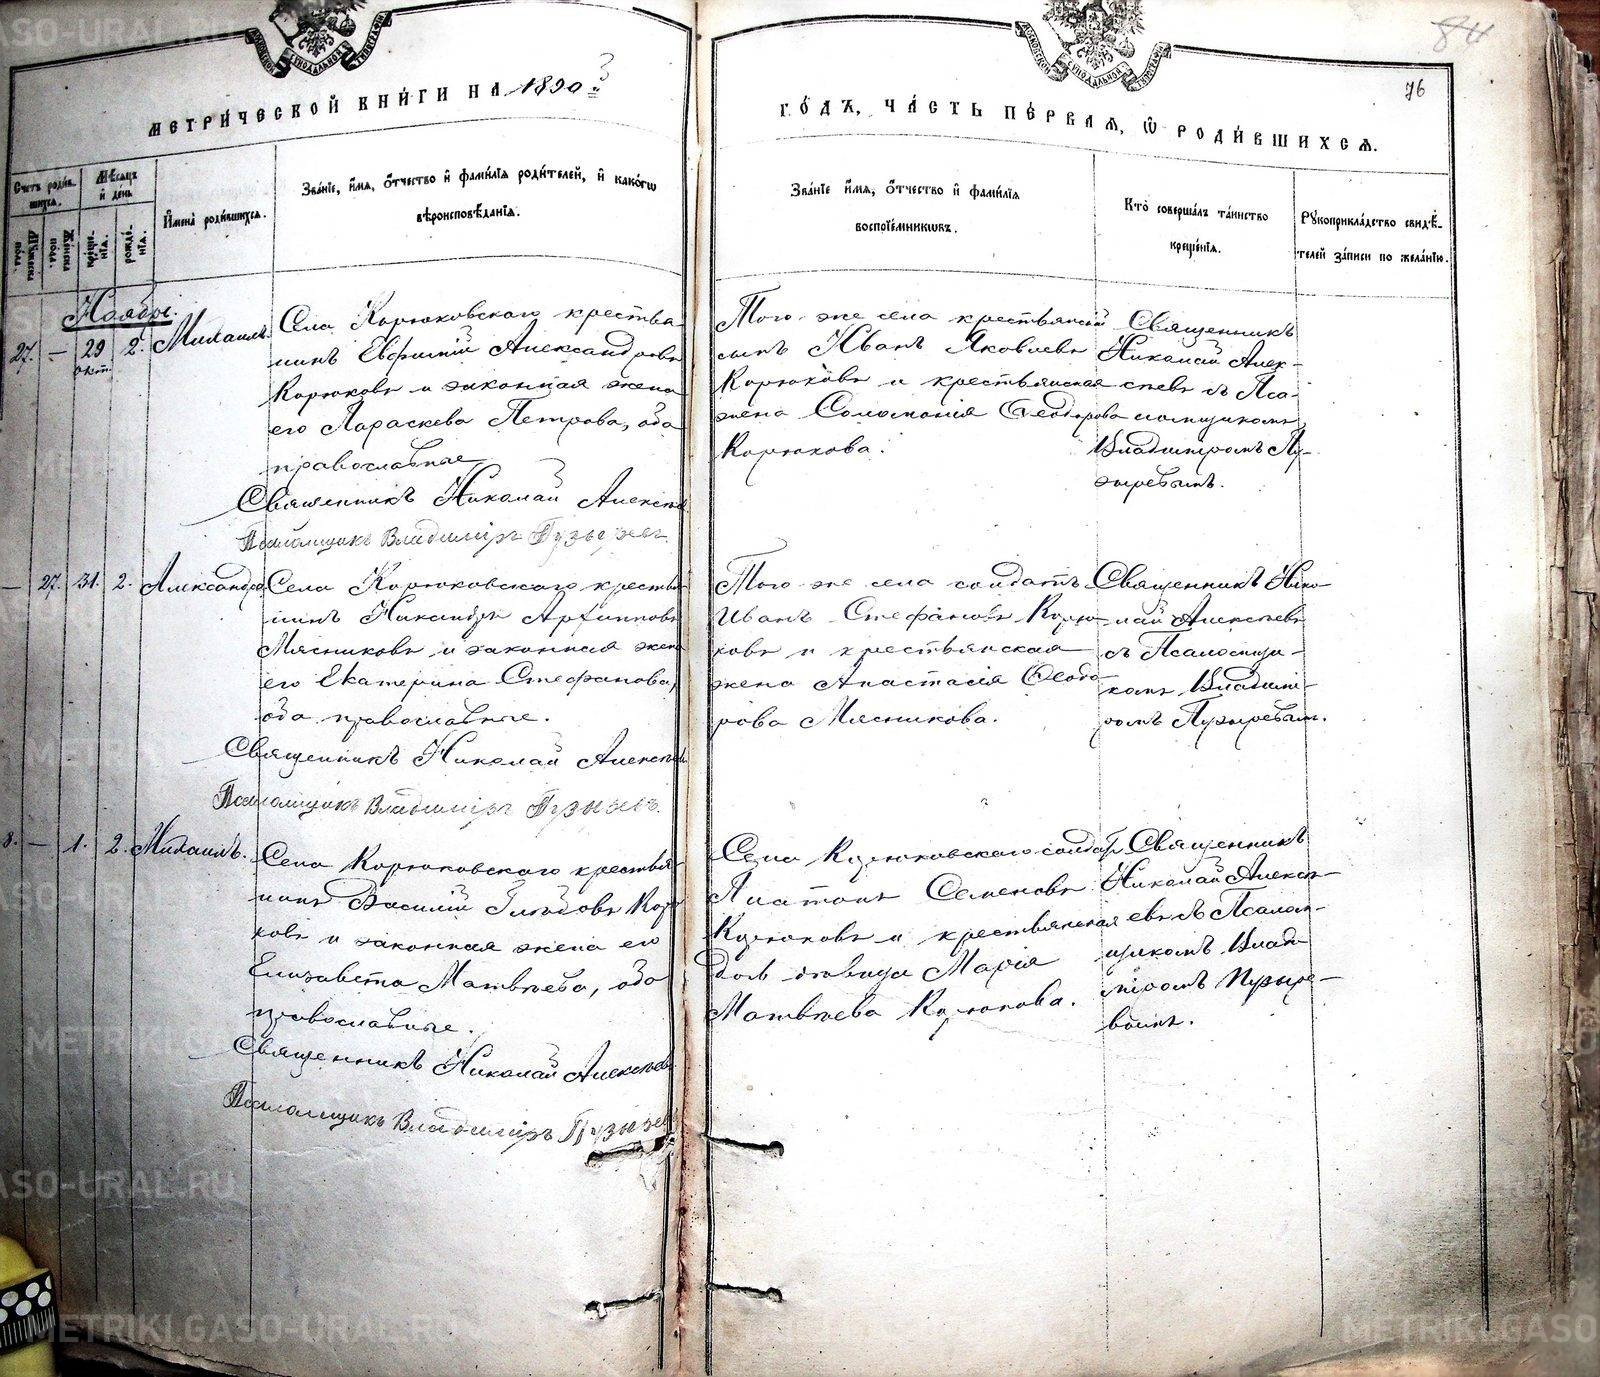 МЕТРИ́ЧЕСКОЙ КНИ́ГИ НА 1890 г.
ГО́ДЪ, ЧА́СТЬ ПЕ́РВАѦ, Ѡ҆ РОДИ́ВШИХСѦ.
84
76
Счетъ роди́вшихсѧ.
Мѣ́сяцъ и҆ день
И҆мена̀ роди́вшихсѧ.
Зва́нїе, и҆́мѧ, ѻ҆́тчество и҆ фами́лїѧ роди́телей, и҆ како́гѡ
вѣроисповѣ́данїѧ.
Мужеска пола.
Женска пола.
рожде́нїѧ.
креще́нїѧ.
Зва́нїе и҆́мѧ, ѻ҆́тчество и҆ фами́лїѧ
воспрїе́мникѡвъ.
Кто̀ соверша́лъ та́инство
креще́нїѧ.
Рꙋкоприкла́дство свидѣ́-
телей за́писи по жела́нїю.
Ноябрь.
27. — 29 окт. 2. Михаилъ.
Села Корюковскаго крестья
нинъ Евфимій Александровъ
Корюковъ и законная жена
его Параскева Петрова, оба
православные
Священникъ Николай Алексѣ
Псаломщикъ Владиміръ Пузыревъ.
Того же села крестьянскій
сынъ Иванъ Яковлевъ
Корюковъ и крестьянская
жена Соломонія Ѳеодорова
Корюкова.
Священникъ
Николай Алек-
сѣевъ съ Пса-
ломщикомъ
Владиміромъ Пу-
зыревымъ.
— 27. 31. 2. Александра
Села Корюковскаго крестья
нинъ Никандръ Архиповъ
Мясниковъ и законная жена
его Екатерина Стефанова,
оба православные.
Священникъ Николай Алексѣев
Псаломщикъ Владиміръ Пузыревъ.
Того же села солдатъ
Иванъ Стефановъ Корю
ковъ и крестьянская
жена Анастасія Ѳеодо-
рова Мясникова.
Священникъ Нико-
лай Алексѣевъ
съ Псаломщи-
комъ Владимі-
ромъ Пузыревым.
8. — 1. 2. Михаилъ.
Села Корюковскаго крестья
нинъ Василій Глѣбовъ Кор
ковъ и законная жена его
Елизавета Матвѣева, оба
православные.
Священникъ Николай Алексѣевъ
Псаломщикъ Владиміръ Пузырев
Села Корюковскаго солдатъ
Платонъ Семеновъ
Корюковъ и крестьянская
дочь дѣвица Марія
Матвѣева Корюкова.
Священникъ
Николай Алексѣ-
евъ съ Псалом-
щикомъ Влади-
міромъ Пузыре-
вымъ.
METRIKI.GASO-URAL.RU